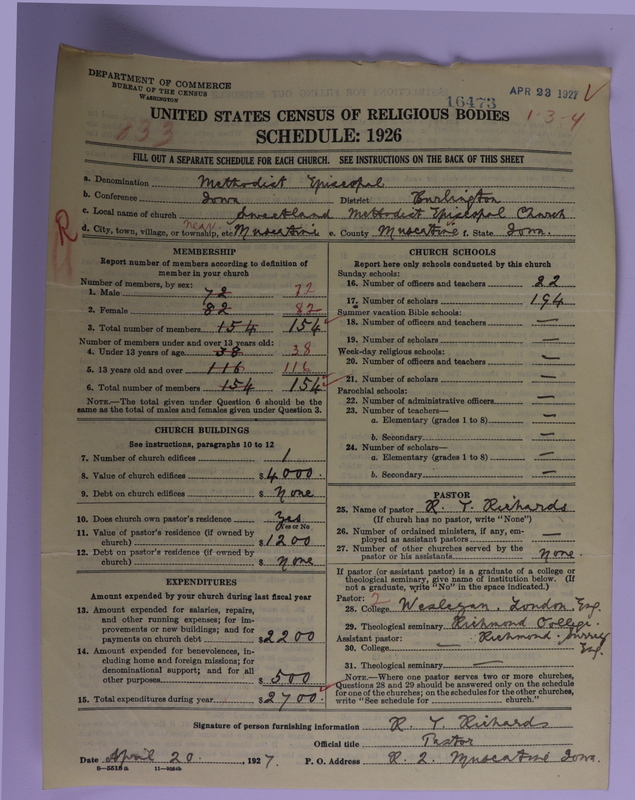 DEPARTMENT OF COMMERCE
BUREAU OF THE CENSUS
WASHINGTON
APR 23 1927
16473
UNITED STATES CENSUS OF RELIGIOUS BODIES
1-3-4
833
SCHEDULE: 1926
FILL OUT A SEPARATE SCHEDULE FOR EACH CHURCH. SEE INSTRUCTIONS ON THE BACK OF THIS SHEET
a. Denomination Methodist Episcopal
b. Conference Iowa District Burlington
c. Local name of church Sweetland Methodist Episcopal Church
R
d. City, town, village, or township, etc. near Muscatine e. County Muscatine f. State Iowa.
MEMBERSHIP
Report number of members according to definition of
member in your church
Number of members, by sex:
1. Male 72 72
2. Female 82 82
3. Total number of members 154 154
Number of members under and over 13 years old:
4. Under 13 years of age 38 38
5. 13 years old and over 116 116
6. Total number of members 154 154
NOTE.—The total given under Question 6 should be the
same as the total of males and females given under Question 3.
CHURCH BUILDINGS
See instructions, paragraphs 10 to 12
7. Number of church edifices 1
8. Value of church edifices $4000.
9. Debt on church edifices $ None
10. Does church own pastor's residence Yes
Yes or No
11. Value of pastor's residence (if owned by
church) $1200
12. Debt on pastor's residence (if owned by
church) $ None
EXPENDITURES
Amount expended by your church during last fiscal year
13. Amount expended for salaries, repairs,
and other running expenses; for im-
provements or new buildings; and for
payments on church debt $2200
14. Amount expended for benevolences, in-
cluding home and foreign missions; for
denominational support; and for all
other purposes $ 500
15. Total expenditures during year $2700.
CHURCH SCHOOLS
Report here only schools conducted by this church
Sunday schools:
16. Number of officers and teachers 22
17. Number of scholars 194
Summer vacation Bible schools:
18. Number of officers and teachers —
19. Number of scholars —
Week-day religious schools:
20. Number of officers and teachers —
21. Number of scholars —
Parochial schools:
22. Number of administrative officers —
23. Number of teachers—
a. Elementary (grades 1 to 8) —
b. Secondary —
24. Number of scholars—
a. Elementary (grades 1 to 8) —
b. Secondary —
PASTOR
25. Name of pastor R. T. Richards
(If church has no pastor, write "None")
26. Number of ordained ministers, if any, em-
ployed as assistant pastors —
27. Number of other churches served by the
pastor or his assistants None.
If pastor (or assistant pastor) is a graduate of a college or
theological seminary, give name of institution below. (If
not a graduate, write "No" in the space indicated.)
Pastor: 2
28. College Wesleyan. London. Eng.
29. Theological seminary Richmond College.
Assistant pastor: Richmond. Surrey
30. College — Eng.
31. Theological seminary —
NOTE.—Where one pastor serves two or more churches,
Questions 28 and 29 should be answered only on the schedule
for one of the churches; on the schedules for the other churches,
write "See schedule for church."
Signature of person furnishing information R. T. Richards
Official title Pastor
Date April 20. , 1927. P. O. Address R. 2. Muscatine Iowa.
8—5518a 11—9864b